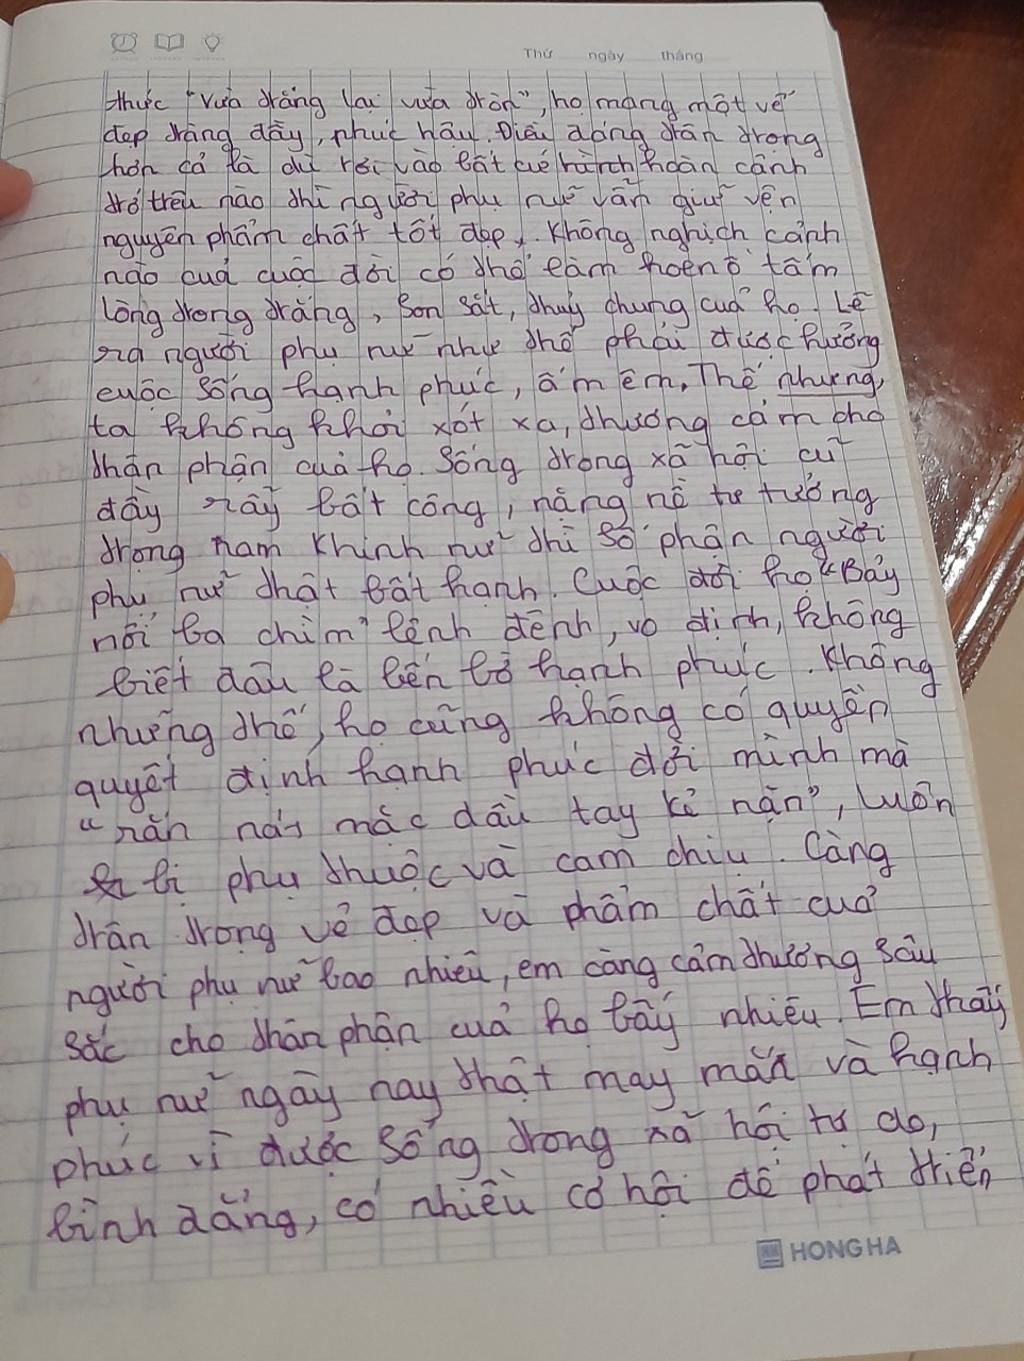 Thứ ngày tháng
thức "vừa trắng lại vừa tròn", họ mang một vẻ
đẹp tràng đầy, phúc hậu. Điều đáng trân trọng
hơn cả là dù rơi vào bất cứ hành hoàn cảnh
trớ trêu nào thì người phụ nữ vẫn giữ vện
nguyên phẩm chất tốt đẹp. Không nghịch cảnh
nào cuả cuộc đời có thể làm hoen ố tấm
lòng trong trắng, son sắt, thuỷ chung cuả họ. Lẽ
ra người phụ nữ như thế phải được hưởng
cuộc sống hạnh phúc, ấm êm. Thế nhưng,
ta không khỏi xót xa, thương cảm cho
thân phận cuả họ. Sống trong xã hội cũ
đầy rẫy bất công, nặng nề tư tưởng
trọng nam khinh nữ thì số phận người
phụ nữ thật bất hạnh. Cuộc đời họ "Bảy
nổi ba chìm" lênh đênh, vô định, không
biết đâu là bến bờ hạnh phúc. Không
những thế, họ cũng không có quyền
quyết định hạnh phúc đời mình mà
"rắn nát mặc dầu tay kẻ nặn", luôn
bị phụ thuộc và cam chịu. Càng
trân trọng vẻ đẹp và phẩm chất cuả
người phụ nữ bao nhiêu, em càng cảm thương sâu
sắc cho thân phận cuả họ bấy nhiêu. Em thấy
phụ nữ ngày nay thật may mắn và hạnh
phúc vì được sống trong xã hội tự do,
bình đẳng, có nhiều cơ hội để phát triển
HONG HA